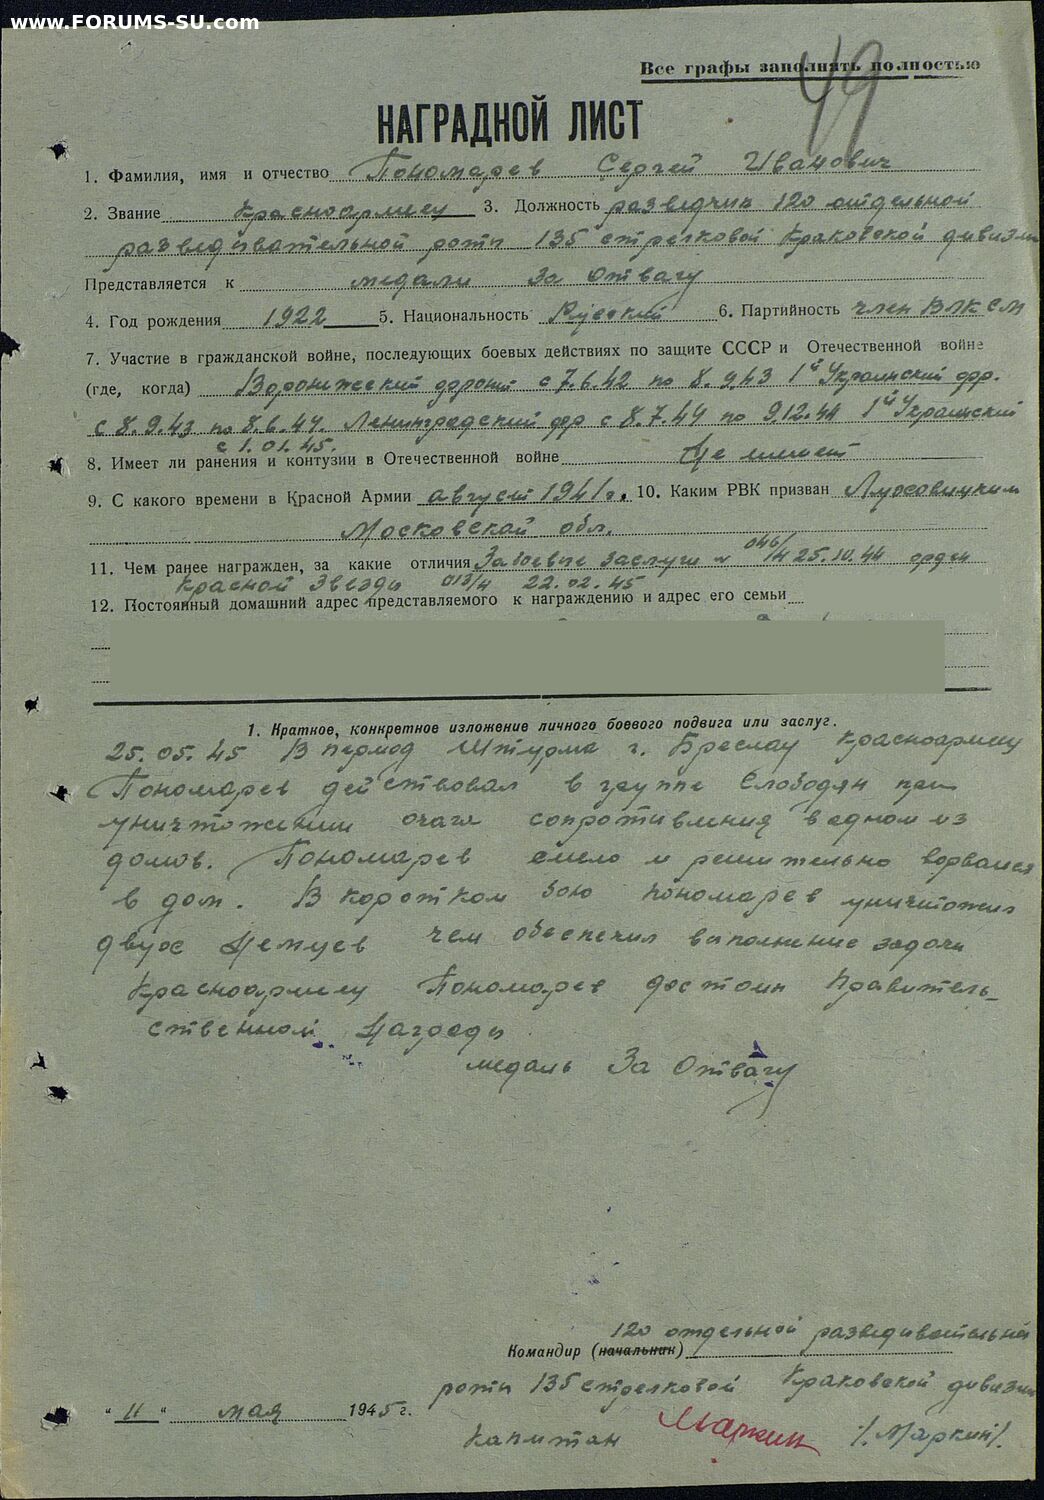 www.FORUMS-SU.com
Все графы заполнять полностью
49
НАГРАДНОЙ ЛИСТ
1. Фамилия, имя и отчество Пономарев Сергей Иванович
2. Звание Красноармеец 3. Должность разведчик 120 отдельной
разведывательной роты 135 стрелковой Краковской дивизии
Представляется к медали За Отвагу
4. Год рождения 1922 5. Национальность Русский 6. Партийность член ВЛКСМ
7. Участие в гражданской войне, последующих боевых действиях по защите СССР и Отечественной войне
(где, когда) Воронежский фронт с 7.6.42 по 8.9.43 1й Украинский фр.
с 8.9.43 по 8.6.44. Ленинградский фр с 8.7.44 по 9.12.44 1й Украинский
с 1.01.45.
8. Имеет ли ранения и контузии в Отечественной войне Не имеет
9. С какого времени в Красной Армии август 1941 г. 10. Каким РВК призван
Московской обл.
11. Чем ранее награжден, за какие отличия За боевые заслуги 046/н 25.10.44 орден
Красной Звезды 013/н 22.02.45
12. Постоянный домашний адрес представляемого к награждению и адрес его семьи
1. Краткое, конкретное изложение личного боевого подвига или заслуг.
25.05.45 В период Штурма г. Бреслау Красноармеец
Пономарев действовал в группе Слободян при
уничтожении очага сопротивления в одном из
домов. Пономарев смело и решительно ворвался
в дом. В коротком бою Пономарев уничтожил
двух Немцев чем обеспечил выполнение задачи
Красноармеец Пономарев достоин Правитель-
ственной Награды
медаль За Отвагу
120 отдельной разведывательной
Командир (начальник)
роты 135 стрелковой Краковской дивизии
"11" мая 1945 г.
Капитан Маркин /Маркин/.